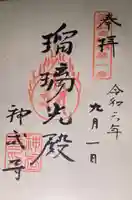 奉拝
令和六年
九月一日
瑠璃光殿
神武寺